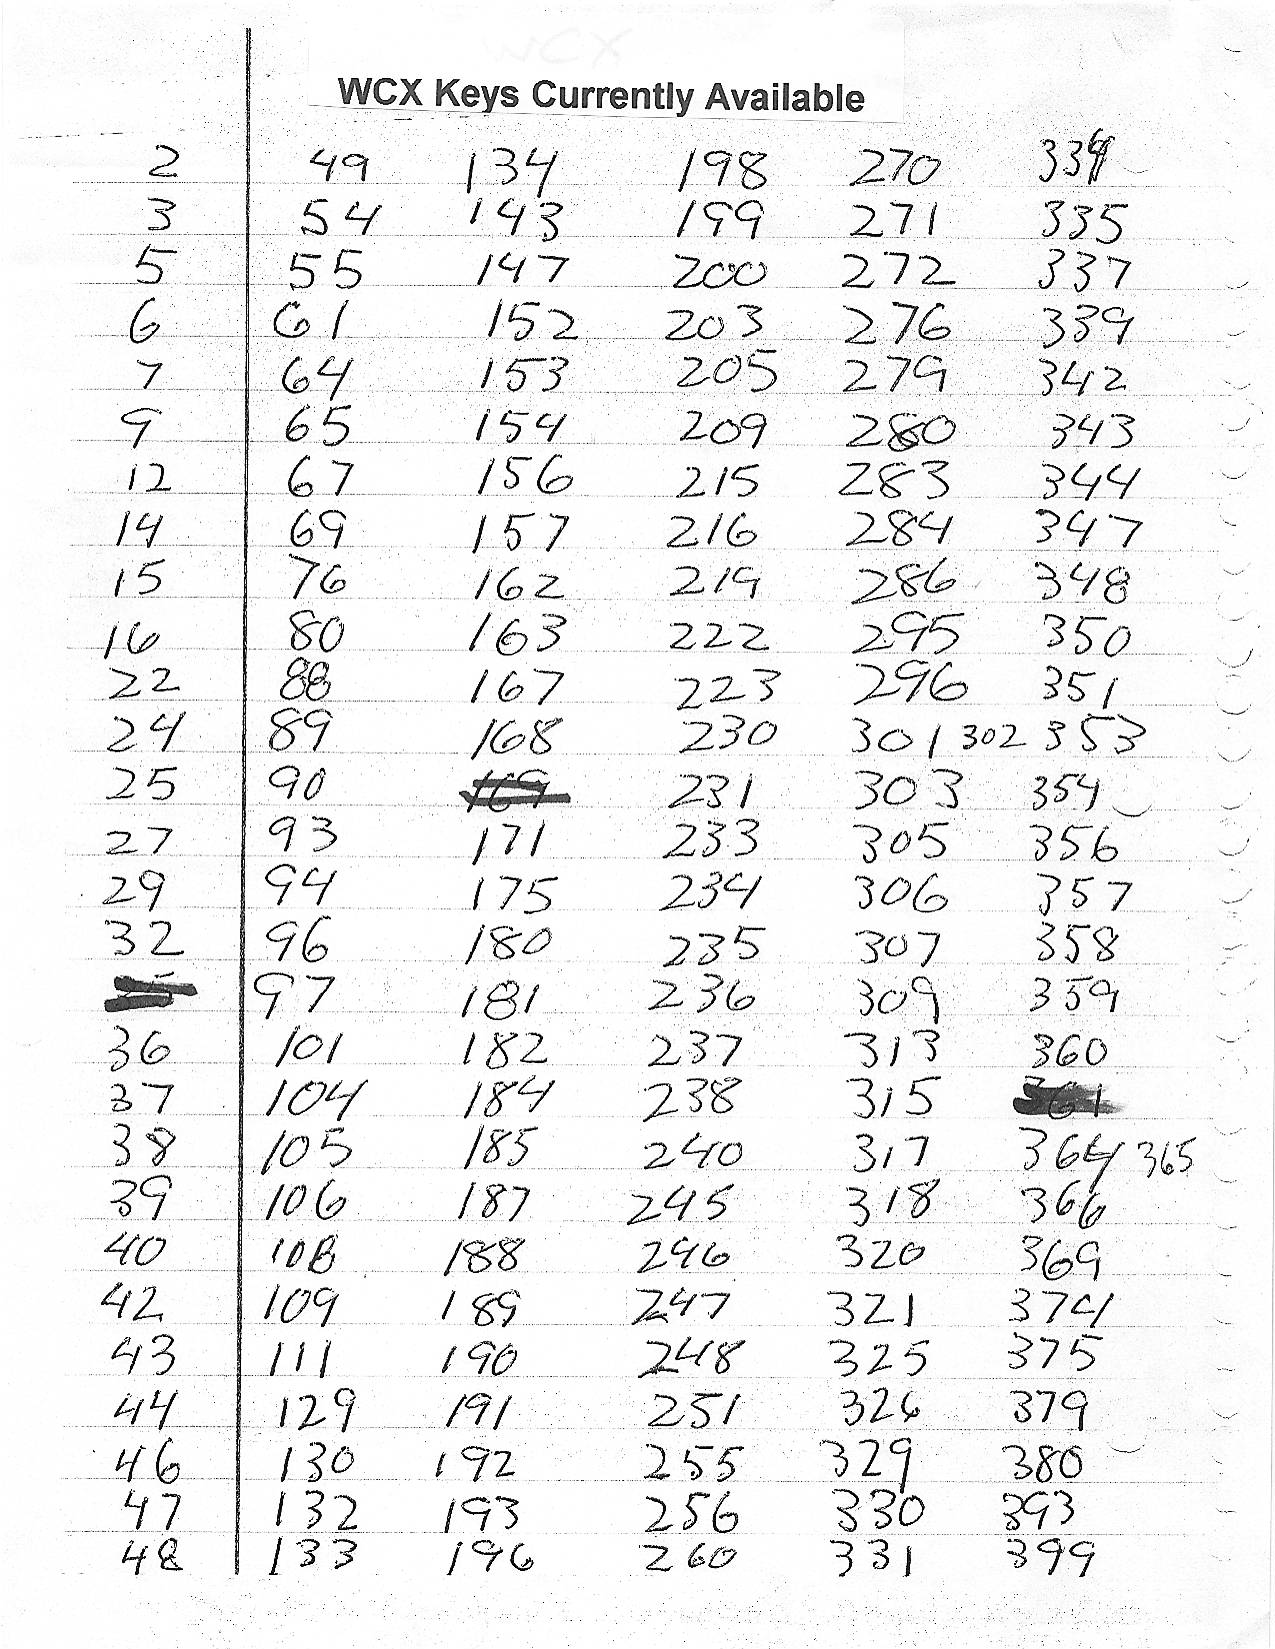 WCX
WCX Keys Currently Available
2 49 134 198 270 334
3 54 143 199 271 335
5 55 147 200 272 337
6 61 152 203 276 339
7 64 153 205 279 342
9 65 154 209 280 343
12 67 156 215 283 344
14 69 157 216 284 347
15 76 162 219 286 348
16 80 163 222 295 350
22 88 167 223 296 351
24 89 168 230 301 302 353
25 90 169 231 303 354
27 93 171 233 305 356
29 94 175 234 306 357
32 96 180 235 307 358
97 181 236 309 359
36 101 182 237 313 360
37 104 184 238 315 361
38 105 185 240 317 364 365
39 106 187 245 318 366
40 108 188 246 320 369
42 109 189 247 321 374
43 111 190 248 325 375
44 129 191 251 326 379
46 130 192 255 329 380
47 132 193 256 330 393
48 133 196 260 331 399